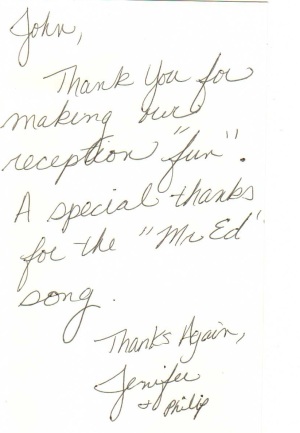 John,
Thank You for
making our
reception "fun".
A special thanks
for the "Mr Ed'
song.
Thanks Again,
Jenifer
+ Philip